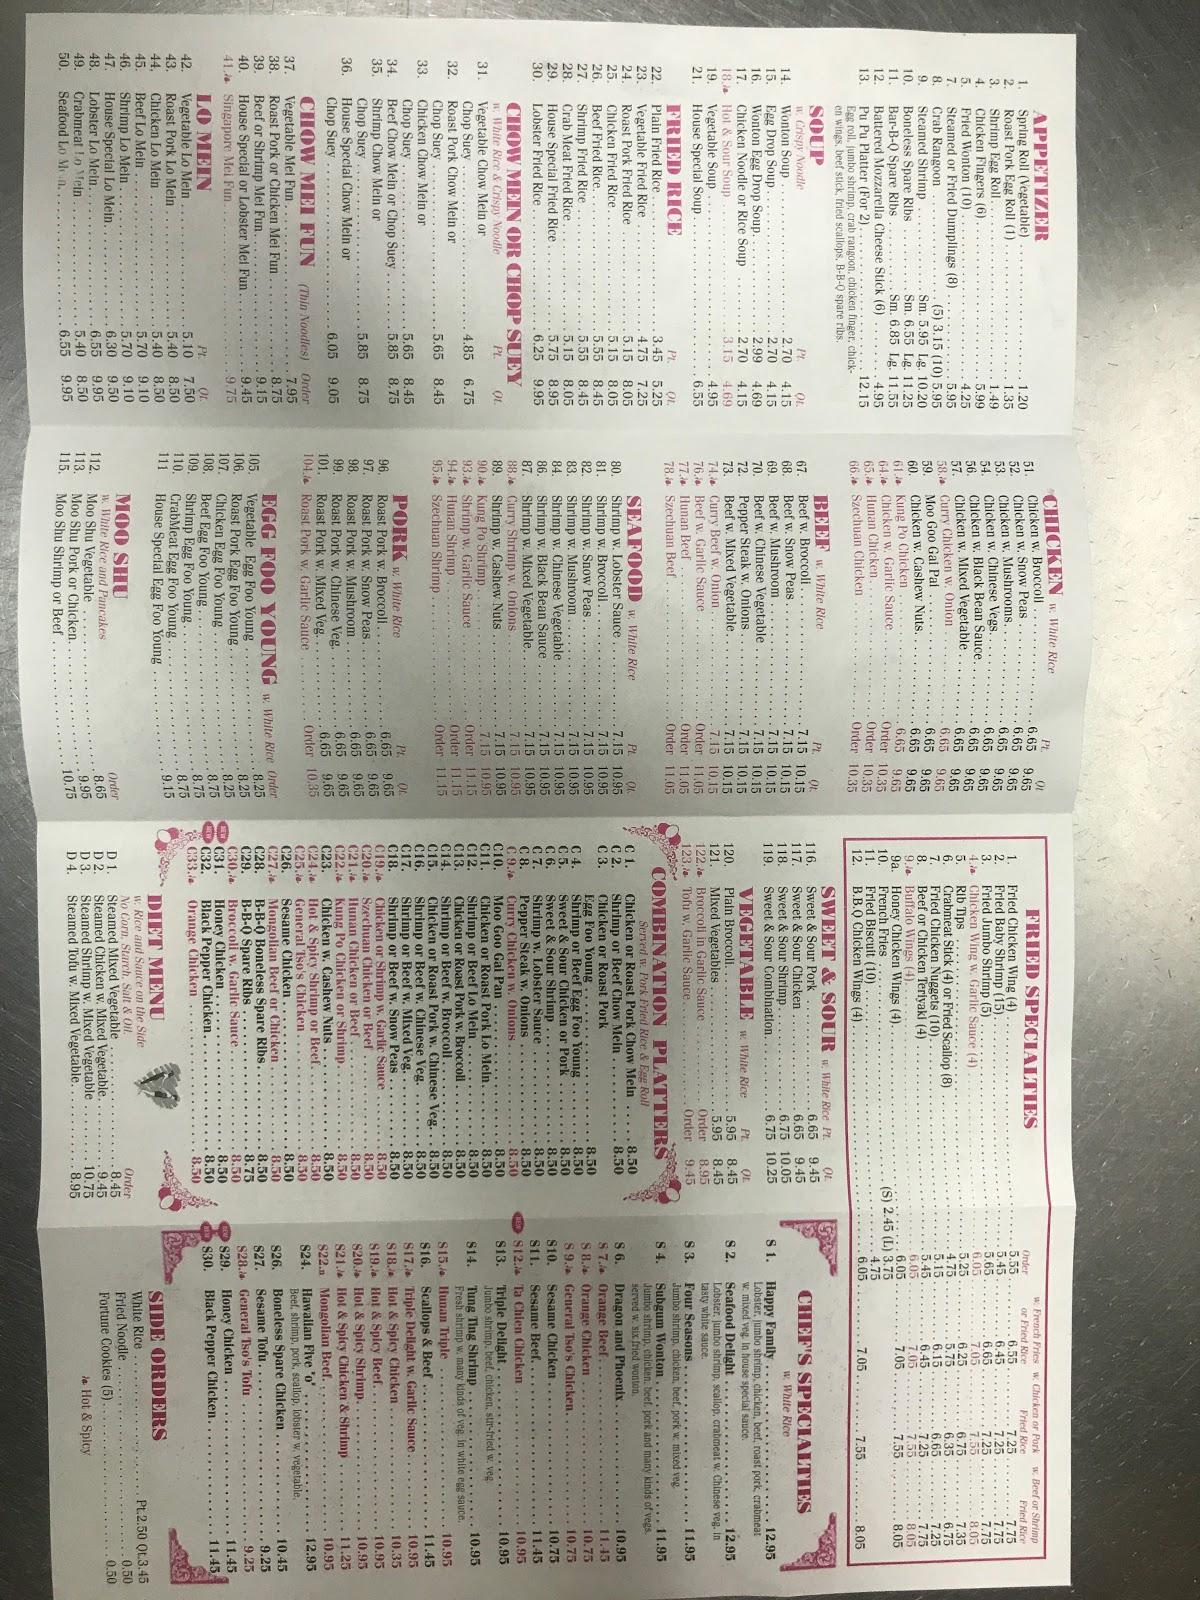 APPETIZER
1. Spring Roll (Vegetable) 1.20
2. Roast Pork Egg Roll (1) 1.35
3. Shrimp Egg Roll 1.49
4. Chicken Fingers (6) 5.99
5. Fried Wonton (10) 4.25
7. Steamed or Fried Dumplings (8) 5.95
8. Crab Rangoon (5) 3.15 (10) 5.95
9. Steamed Shrimp Sm. 5.95 Lg. 10.20
10. Boneless Spare Ribs Sm. 6.55 Lg. 11.25
11. Bar-B-Q Spare Ribs Sm. 6.85 Lg. 11.55
12. Battered Mozzarella Cheese Stick (6) 4.95
13. Pu Pu Platter (For 2) 12.15
Egg roll, jumbo shrimp, crab rangoon, chicken finger, chick-
en wings, beef stick, fried scallops, B-B-Q spare ribs.
SOUP
w. Crispy Noodle Pt. Qt.
14. Wonton Soup 2.70 4.15
15. Egg Drop Soup 2.70 4.15
16. Wonton Egg Drop Soup 2.99 4.69
17. Chicken Noodle or Rice Soup 2.70 4.15
18. Hot & Sour Soup 3.15 4.69
19. Vegetable Soup 4.95
21. House Special Soup 6.55
FRIED RICE Pt. Qt.
22. Plain Fried Rice 3.45 5.25
23. Vegetable Fried Rice 4.75 7.25
24. Roast Pork Fried Rice 5.15 8.05
25. Chicken Fried Rice 5.15 8.05
26. Beef Fried Rice 5.55 8.45
27. Shrimp Fried Rice 5.55 8.45
28. Crab Meat Fried Rice 5.15 8.05
29. House Special Fried Rice 5.75 8.95
30. Lobster Fried Rice 6.25 9.95
CHOW MEIN OR CHOP SUEY
w. White Rice & Crispy Noodle Pt. Qt.
31. Vegetable Chow Mein or
Chop Suey 4.85 6.75
32. Roast Pork Chow Mein or
Chop Suey 5.65 8.45
33. Chicken Chow Mein or
Chop Suey 5.65 8.45
34. Beef Chow Mein or Chop Suey 5.85 8.75
35. Shrimp Chow Mein or
Chop Suey 5.85 8.75
36. House Special Chow Mein or
Chop Suey 6.05 9.05
CHOW MEI FUN (Thin Noodles) Order
37. Vegetable Mei Fun 7.95
38. Roast Pork or Chicken Mei Fun 8.75
39. Beef or Shrimp Mei Fun 9.15
40. House Special or Lobster Mei Fun 9.45
41. Singapore Mei Fun 9.75
LO MEIN Pt. Qt.
42. Vegetable Lo Mein 5.10 7.50
43. Roast Pork Lo Mein 5.40 8.50
44. Chicken Lo Mein 5.40 8.50
45. Beef Lo Mein 5.70 9.10
46. Shrimp Lo Mein 5.70 9.10
47. House Special Lo Mein 6.30 9.50
48. Lobster Lo Mein 6.55 9.95
49. Crabmeat Lo Mein 5.40 8.50
50. Seafood Lo Mein 6.55 9.95
CHICKEN w. White Rice Pt. Qt
51. Chicken w. Broccoli 6.65 9.65
52. Chicken w. Snow Peas 6.65 9.65
53. Chicken w. Mushrooms 6.65 9.65
54. Chicken w. Chinese Vegs. 6.65 9.65
56. Chicken w. Black Bean Sauce 6.65 9.65
57. Chicken w. Mixed Vegetable 6.65 9.65
58. Curry Chicken w. Onion 6.65 9.65
59. Moo Goo Gai Pai 6.65 9.65
60. Chicken w. Cashew Nuts 6.65 9.65
61. Kung Po Chicken 6.65 9.65
64. Chicken w. Garlic Sauce Order 10.35
65. Hunan Chicken Order 10.35
66. Szechuan Chicken Order 10.35
BEEF w. White Rice Pt. Qt.
67. Beef w. Broccoli 7.15 10.15
68. Beef w. Snow Peas 7.15 10.15
69. Beef w. Mushroom 7.15 10.15
70. Beef w. Chinese Vegetable 7.15 10.15
72. Pepper Steak w. Onions 7.15 10.15
73. Beef w. Mixed Vegetable 7.15 10.15
74. Curry Beef w. Onion 7.15 10.15
76. Beef w. Garlic Sauce Order 11.05
77. Hunan Beef Order 11.05
78. Szechuan Beef Order 11.05
SEAFOOD w. White Rice Pt. Qt.
80. Shrimp w. Lobster Sauce 7.15 10.95
81. Shrimp w. Broccoli 7.15 10.95
82. Shrimp w. Snow Peas 7.15 10.95
83. Shrimp w. Mushroom 7.15 10.95
84. Shrimp w. Chinese Vegetable 7.15 10.95
86. Shrimp w. Black Bean Sauce 7.15 10.95
87. Shrimp w. Mixed Vegetable 7.15 10.95
88. Curry Shrimp w. Onions 7.15 10.95
89. Shrimp w. Cashew Nuts 7.15 10.95
90. Kung Po Shrimp 7.15 10.95
93. Shrimp w. Garlic Sauce Order 11.15
94. Hunan Shrimp Order 11.15
95. Szechuan Shrimp Order 11.15
PORK w. White Rice Pt. Qt.
96. Roast Pork w. Broccoli 6.65 9.65
97. Roast Pork w. Snow Peas 6.65 9.65
98. Roast Pork w. Mushroom 6.65 9.65
99. Roast Pork w. Chinese Veg. 6.65 9.65
101. Roast Pork w. Mixed Veg. 6.65 9.65
104. Roast Pork w. Garlic Sauce Order 10.35
EGG FOO YOUNG w. White Rice Order
105. Vegetable Egg Foo Young 8.25
106. Roast Pork Egg Foo Young 8.25
107. Chicken Egg Foo Young 8.25
108. Beef Egg Foo Young 8.75
109. Shrimp Egg Foo Young 8.75
110. CrabMeat Egg Foo Young 8.75
111 House Special Egg Foo Young 9.15
MOO SHU
w. White Rice and Pancakes Order
112. Moo Shu Vegetable 8.65
113. Moo Shu Pork or Chicken 9.95
115. Moo Shu Shrimp or Beef 10.75
FRIED SPECIALTIES
Order w. French Fries or Fried Rice w. Chicken or Pork Fried Rice w. Beef or Shrimp Fried Rice
1. Fried Chicken Wing (4) 5.55 6.55 7.25 7.75
2. Fried Baby Shrimp (15) 5.45 6.45 7.25 7.75
3. Fried Jumbo Shrimp (5) 5.65 6.65 7.25 7.75
4. Chicken Wing w. Garlic Sauce (4) 6.05 7.05 7.55 8.05
5. Rib Tips 5.25 6.25 6.75 7.35
6. Crabmeat Stick (4) or Fried Scallop (8) 4.75 5.75 6.35 6.75
7. Fried Chicken Nuggets (10) 5.15 6.15 6.65 7.25
8. Beef or Chicken Teriyaki (4) 5.45 6.45 7.25 7.75
9. Buffalo Wings (4) 6.05 7.05 7.55 8.05
9a. Honey Chicken Wings (4) 6.05 7.05 7.55 8.05
10. French Fries (S) 2.45 (L) 3.75
11. Fried Biscuit (10) 4.75
12. B.B.Q Chicken Wings (4) 6.05 7.05 7.55 8.05
SWEET & SOUR w. White Rice Pt. Qt.
116. Sweet & Sour Pork 6.65 9.45
117. Sweet & Sour Chicken 6.65 9.45
118. Sweet & Sour Shrimp 6.75 10.05
119. Sweet & Sour Combination 6.75 10.25
VEGETABLE w. White Rice Pt. Qt.
120. Plain Broccoli 5.95 8.45
121. Mixed Vegetables 5.95 8.45
122. Broccoli in Garlic Sauce Order 8.95
123. Tofu w. Garlic Sauce Order 9.45
COMBINATION PLATTERS
Served w. Pork Fried Rice & Egg Roll
C 1. Chicken or Roast Pork Chow Mein 8.50
C 2. Shrimp or Beef Chow Mein 8.50
C 3. Chicken or Roast Pork
Egg Foo Young 8.50
C 4. Shrimp or Beef Egg Foo Young 8.50
C 5. Sweet & Sour Chicken or Pork 8.50
C 6. Sweet & Sour Shrimp 8.50
C 7. Shrimp w. Lobster Sauce 8.50
C 8. Pepper Steak w. Onions 8.50
C 9. Curry Chicken w. Onions 8.50
C10. Moo Goo Gai Pan 8.50
C11. Chicken or Roast Pork Lo Mein 8.50
C12. Shrimp or Beef Lo Mein 8.50
C13. Chicken or Roast Pork w. Broccoli 8.50
C14. Shrimp or Beef w. Broccoli 8.50
C15. Chicken or Roast Pork w. Chinese Veg. 8.50
C16. Shrimp or Beef w. Chinese Veg. 8.50
C17. Shrimp or Beef w. Mixed Veg. 8.50
C18. Shrimp or Beef w. Snow Peas 8.50
C19. Chicken or Shrimp w. Garlic Sauce 8.50
C20. Szechuan Chicken or Beef 8.50
C21. Hunan Chicken or Beef 8.50
C22. Kung Po Chicken or Shrimp 8.50
C23. Chicken w. Cashew Nuts 8.50
C24. Hot & Spicy Shrimp or Beef 8.50
C25. General Tso's Chicken 8.50
C26. Sesame Chicken 8.50
C27. Mongolian Beef or Chicken 8.50
C28. B-B-Q Boneless Spare Ribs 8.50
C29. B-B-Q Spare Ribs 8.75
C30. Broccoli w. Garlic Sauce 8.50
NEW C31. Honey Chicken 8.50
NEW C32. Black Pepper Chicken 8.50
C33. Orange Chicken 8.50
DIET MENU
w. Rice and Sauce on the Side
No Corn, Starch, Salt & Oil. Order
D 1. Steamed Mixed Vegetable 8.45
D 2. Steamed Chicken w. Mixed Vegetable 9.45
D 3. Steamed Shrimp w. Mixed Vegetable 10.75
D 4. Steamed Tofu w. Mixed Vegetable 8.95
CHEF'S SPECIALTIES
w. White Rice
S 1. Happy Family 12.95
Lobster, jumbo shrimp, chicken, beef, roast pork, crabmeat
w. mixed veg. in house special sauce.
S 2. Seafood Delight 12.95
Lobster, jumbo shrimp, scallop, crabmeat w. Chinese veg. in
tasty white sauce.
S 3. Four Seasons 11.95
Jumbo shrimp, chicken, beef, pork w. mixed veg.
S 4. Subgum Wonton 11.95
Jumbo shrimp, chicken, beef, pork and many kinds of vegs.
served w. six fried wonton.
S 6. Dragon and Phoenix 10.95
S 7. Orange Beef 11.45
S 8. Orange Chicken 10.75
S 9. General Tso's Chicken 10.75
S10. Sesame Chicken 10.75
S11. Sesame Beef 11.45
NEW S12. Ta Chien Chicken 10.95
S13. Triple Delight 10.95
Jumbo shrimp, beef, chicken, stir-fried w. veg.
S14. Tung Ting Shrimp 10.95
Fresh shrimp w. many kinds of veg. in white egg sauce.
S15. Hunan Triple 10.95
S16. Scallops & Beef 11.45
S17. Triple Delight w. Garlic Sauce 10.95
S18. Hot & Spicy Chicken 10.35
S19. Hot & Spicy Beef 10.95
S20. Hot & Spicy Shrimp 10.95
S21. Hot & Spicy Chicken & Shrimp 11.25
S22. Mongolian Beef 10.95
S24. Hawaiian Five 'o' 12.95
Beef, shrimp, pork, scallop, lobster w. vegetable.
S26. Boneless Spare Chicken 10.45
S27. Sesame Tofu 9.25
S28. General Tso's Tofu 9.25
NEW S29. Honey Chicken 11.45
NEW S30. Black Pepper Chicken 11.45
SIDE ORDERS
White Rice Pt.2.50 Qt.3.45
Fried Noodle 0.50
Fortune Cookies (5) 0.50
Hot & Spicy